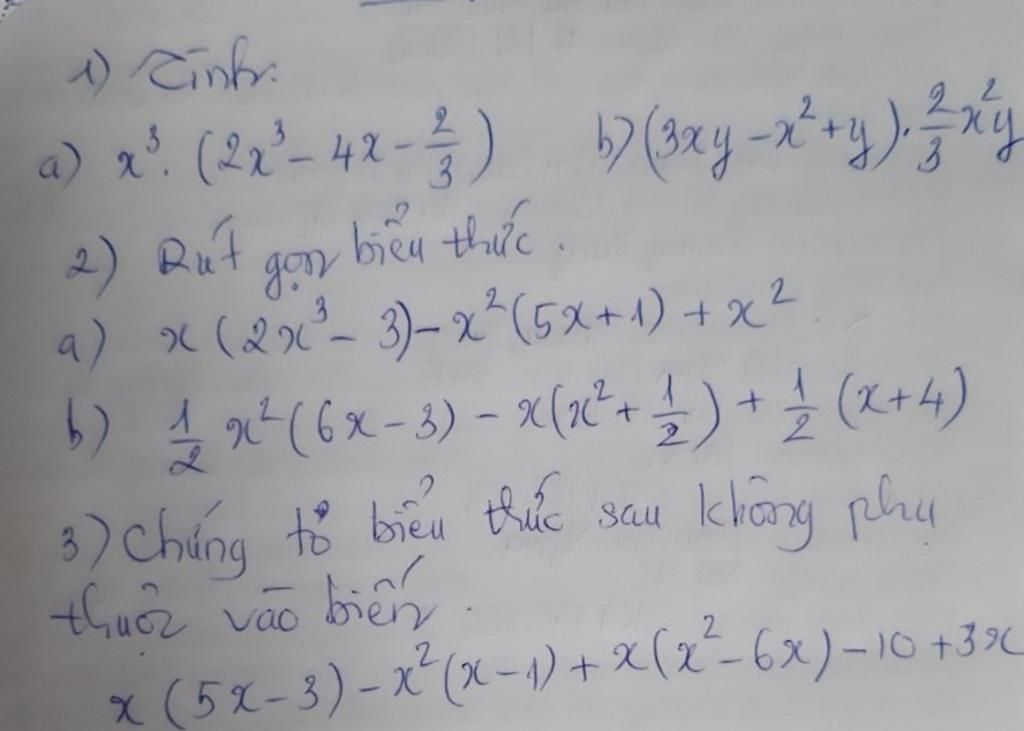 1) Tính:
a) x³. (2x³ - 4x - 2/3)  b) (3xy - x² + y). 2/3 x²y
2) Rút gọn biểu thức.
a) x (2x³ - 3) - x² (5x + 1) + x²
b) 1/2 x² (6x - 3) - x(x² + 1/2) + 1/2 (x + 4)
3) Chứng tỏ biểu thức sau không phụ
thuộc vào biến.
x (5x - 3) - x² (x - 1) + x(x² - 6x) - 10 + 3x